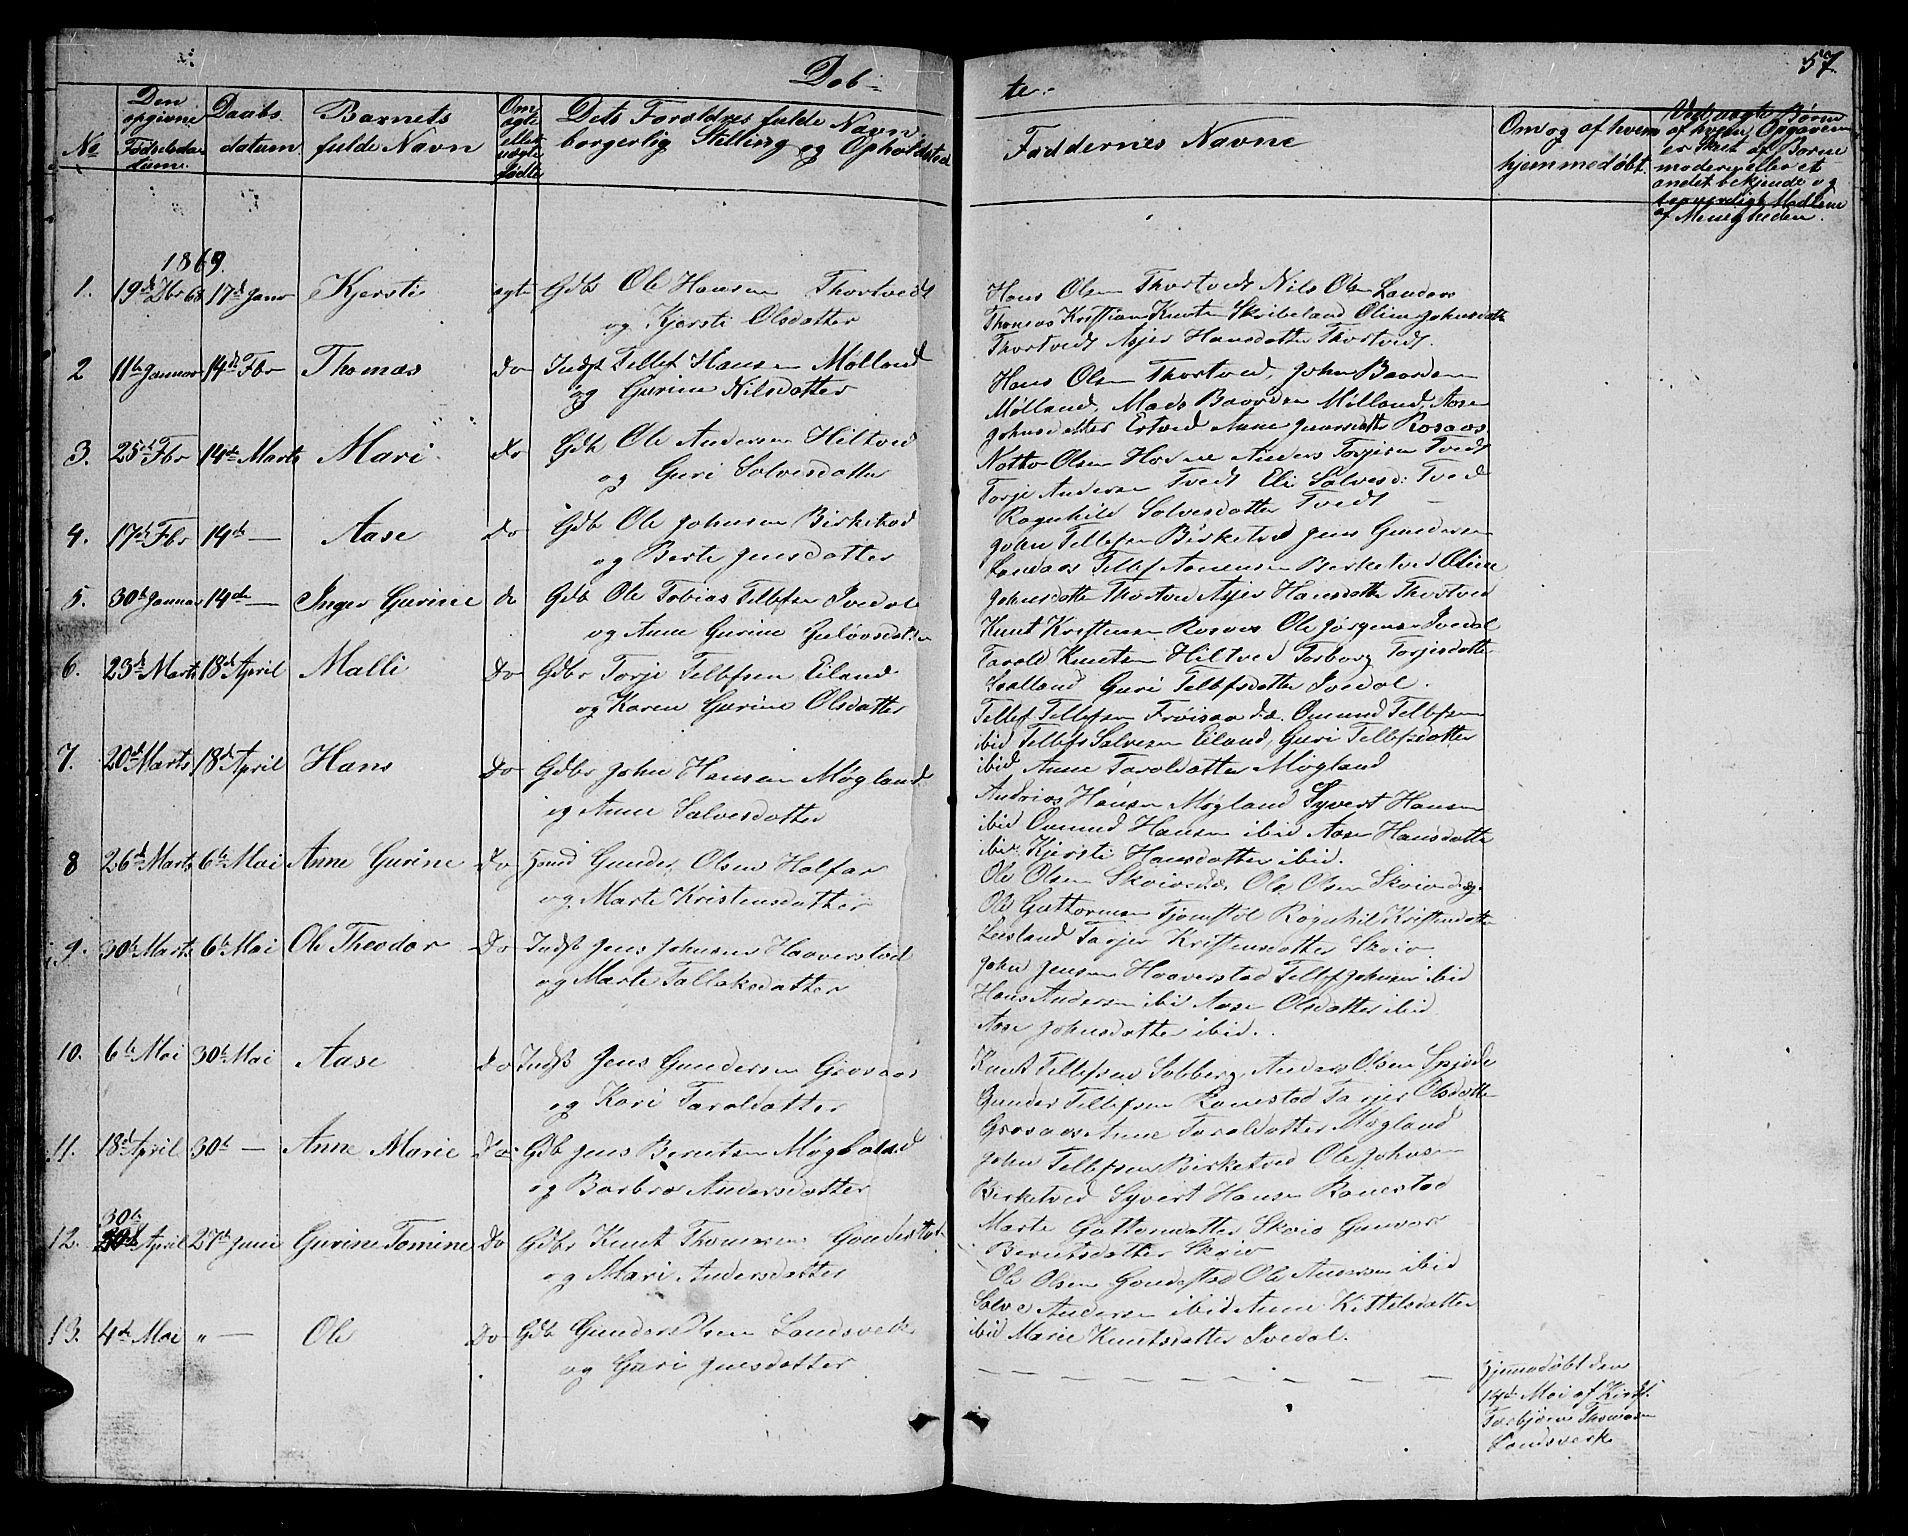 Døb-
te.
57.
No
Den opgivne Fødselsdatum.
Daabs datum
Barnets fulde Navn
Om ægte eller uægte fødte
Dets Forældres fulde Navn, borgerlig Stilling og Opholdsted
Faddernes Navne
Om og af hvem hjemmedøbt.
Ved uægte Børn af hvem Opgaven er skeet af Barnemoderen eller et andet bekjendt og troværdigt Medlem af Menigheden.
1869
1. 19de Dbr 68 17de Janr Kjersti ægte Gdbr Ole Hansen Thortvedt
og Kjersti Olsdatter
Hans Olsen Thortvedt Nils Olsen Landaas
Thomas Kristian Knuts Skribeland Oline Johnsdatter
Thortvedt Asjer Hansdatter Thortvedt.
2 11te Januar 14de Fbr Thomas do Indst Tellef Hansen Mølland
og Gurine Nilsdatter
Hans Olsen Thortved, John Baardsen
Mølland, Mads Baardsen Mølland, Aase
Johnsdatter Ertved Anne Rosaas
3. 25de Fbr 14de Marts Mari do Gdb Ole Andersen Hiltved
og Guri Salvesdatter
Notto Olsen Anders Torjesen Tvedt
Torje Andersen Tvedt Eli Salvesd: Tved
Ragnhild Salvesdatter Tvedt
4. 17de Fbr 14de — Aase do Gdb Ole Johnsen Birketved
og Berte Jensdatter
John Tellefsen Birketved Jens Gundersen
Landaas Tellef Birketved Oline
Johnsdatter Thortved Asjer Hansdatter Thortved
5. 30te Januar 14de — Inger Gurine do Gdb Ole Tobias Tellefsen Ivedal
og Anne Gurine
Knut Kristensen Rosaas Ole Jørgensen Ivedal
Tarald Knutsen Hiltved Torborg Torjesdatter
Guri Tellefsdatter Ivedal.
6. 23de Marts 18de April Malli Do Gdbr Torje Tellefsen Eiland
og Karen Gurine Olsdatter
Tellef Tellefsen Frøisaa Omund Tellefsen
ibid Tellef Salvesen Eiland, Guri Tellefsdatter
ibid Anne Taroldatter Møgland
7. 20de Marts 18de April Hans Do Gdbr John Hansen Møgland
og Anne Salvesdatter
Andrias Hansen Møgland Syvert Hansen
ibid Omund Hansen ibid Aase Hansdatter
ibid. Kjersti Hansdatter ibid.
8 26de Marts 6te Mai Anne Gurine Do Gunder Olsen Halfar
og Marte Kristensdatter
Ole Olsen Ole Olsen
Ole Guttormsen Tjomstøl Ragnhil Kristensdatter
Lersland Tarjer Kristensdatter Skoie
9. 30te Marts 6te Mai Ole Theodor Do Indst Jens Johnsen Haaverstad
og Marte Tallaksdatter
John Jensen Haaverstad Tellef Johnsen ibid
Hans Andersen ibid Aase Olsdatter ibid
Aase Johnsdatter ibid.
10. 6te Mai 30te Mai Aase do Indst Jens Gundersen Grosaas
og Kari Taroldatter
Knut Tellefsen Anders Olsen
Gunder Tellefsen Ranestad Tarjer Olsdatter
Grosaas Anne Taroldatter Møgland
11. 18de April 30te — Anne Marie Do Gdb Jens Berntsen Møglaland
og Barbro Andersdatter
John Tellefsen Birketved Ole Johnsen
Birketved Syvert Hansen Ranestad
Marte Guttormsdatter Skoie Gunvor
Berntsdatter Skoie
12. 30te April 27de Juni Gurine Tomine Do Gdbr Knut Thomesen Gundestad
og Mari Andersdatter
Ole Olsen Gundestad Ole Andersen ibid
Salve Andersen ibid Anne Kittelsdatter
ibid Marie Knutsdatter Ivedal.
13. 4de Mai " — Ole Do Gdb Gunder Olsen Landsverk
og Guri Jensdatter
— — — — — — — — —
Hjemmedøbt den
14de Mai af Kirks.
Torbjørn Thomasen
Landsverk